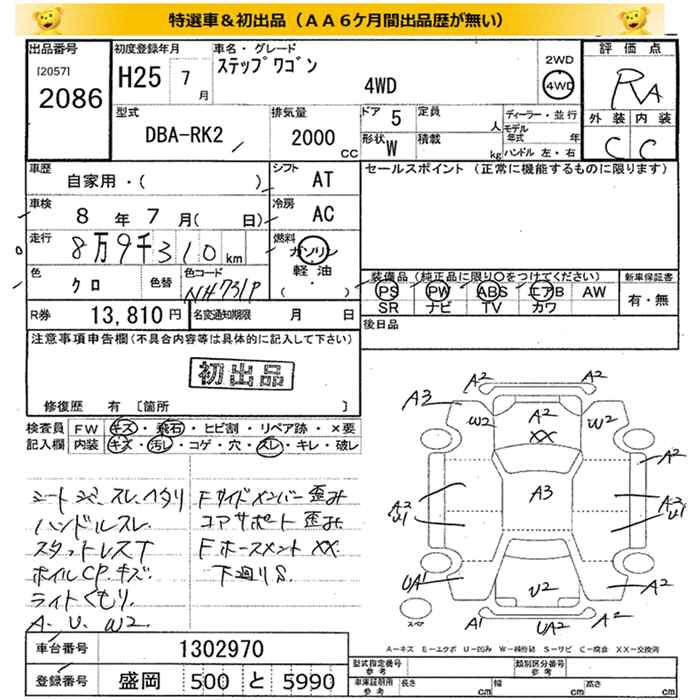 特選車＆初出品（ＡＡ６ケ月間出品歴が無い）
出品番号
[2057]
2086
初度登録年月
H25 7月
車名・グレード
ステップワゴン
4WD
2WD
4WD
評価点
RA
外装 内装
C C
型式
DBA-RK2
排気量
2000 CC
ドア 5
定員 人
形状 W
積載 kg
ディーラー・並行
モデル年式 年
ハンドル 左・右
車歴
自家用・( )
シフト AT
セールスポイント（正常に機能するものに限ります）
車検
8年 7月( 日)
冷房 AC
走行
8万9千310km
燃料
ガソリン
軽油
( ・ )
色
クロ
色替
色コード
NH731P
装備品（純正品に限り○をつけてください）
PS PW ABS エアB AW
SR ナビ TV カワ
新車保証書
有・無
R券 13,810円
名変通知期限 月 日
後日品
注意事項申告欄(不具合内容等は具体的に記入して下さい)
初出品
修復歴 有 〔箇所 〕
検査員記入欄
FW キズ・飛石・ヒビ割・リペア跡・×要
内装 キズ・汚レ・コゲ・穴・スレ・キレ・破レ
シートシミ、スレ、ヘタリ
ハンドルスレ.
スタットレスT
ホイルCP.キズ.
ライトくもり.
A. U. W2
Fサイドメンバー歪み
コアサポート歪み
Fホースメント XX.
下廻りS.
A2
A2
A3
W2
A2
XX
W2
A2
A3
A2
U1
A2
U1
UA1
U2
A2
A1
UA2
A2
スペア
A－キズ E－エクボ U－凹み W－補修跡 S－サビ C－腐食 XX－交換済
車台番号 1302970
登録番号 盛岡 500 と 5990
型式指定番号 参考
類別区分番号 参考
車庫証明用 参考
長さ cm
幅 cm
高さ cm